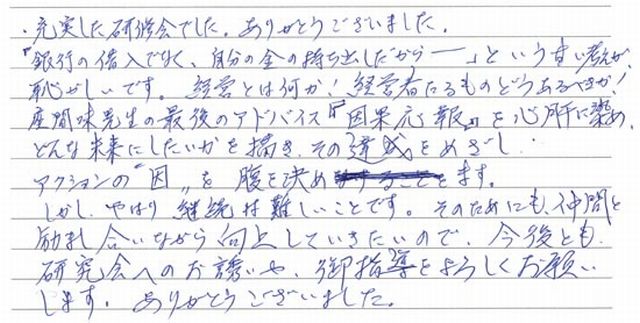 ・充実した研修会でした。ありがとうございました。
「銀行の借入でなく、自分の金の持ち出しだから──」という甘い考えが、
恥ずかしいです。経営とは何か！経営者たるものどうあるべきか！
座間味先生の最後のアドバイス『因果応報』を心肝に染め、
どんな未来にしたいかを描き、その達成をめざし、
アクションの"因"を腹を決めます。
しかし、やはり継続は難しいことです。そのためにも、仲間と
励まし合いながら向上していきたいので、今後とも、
研究会へのお誘いや、御指導をよろしくお願い
します。ありがとうございました。